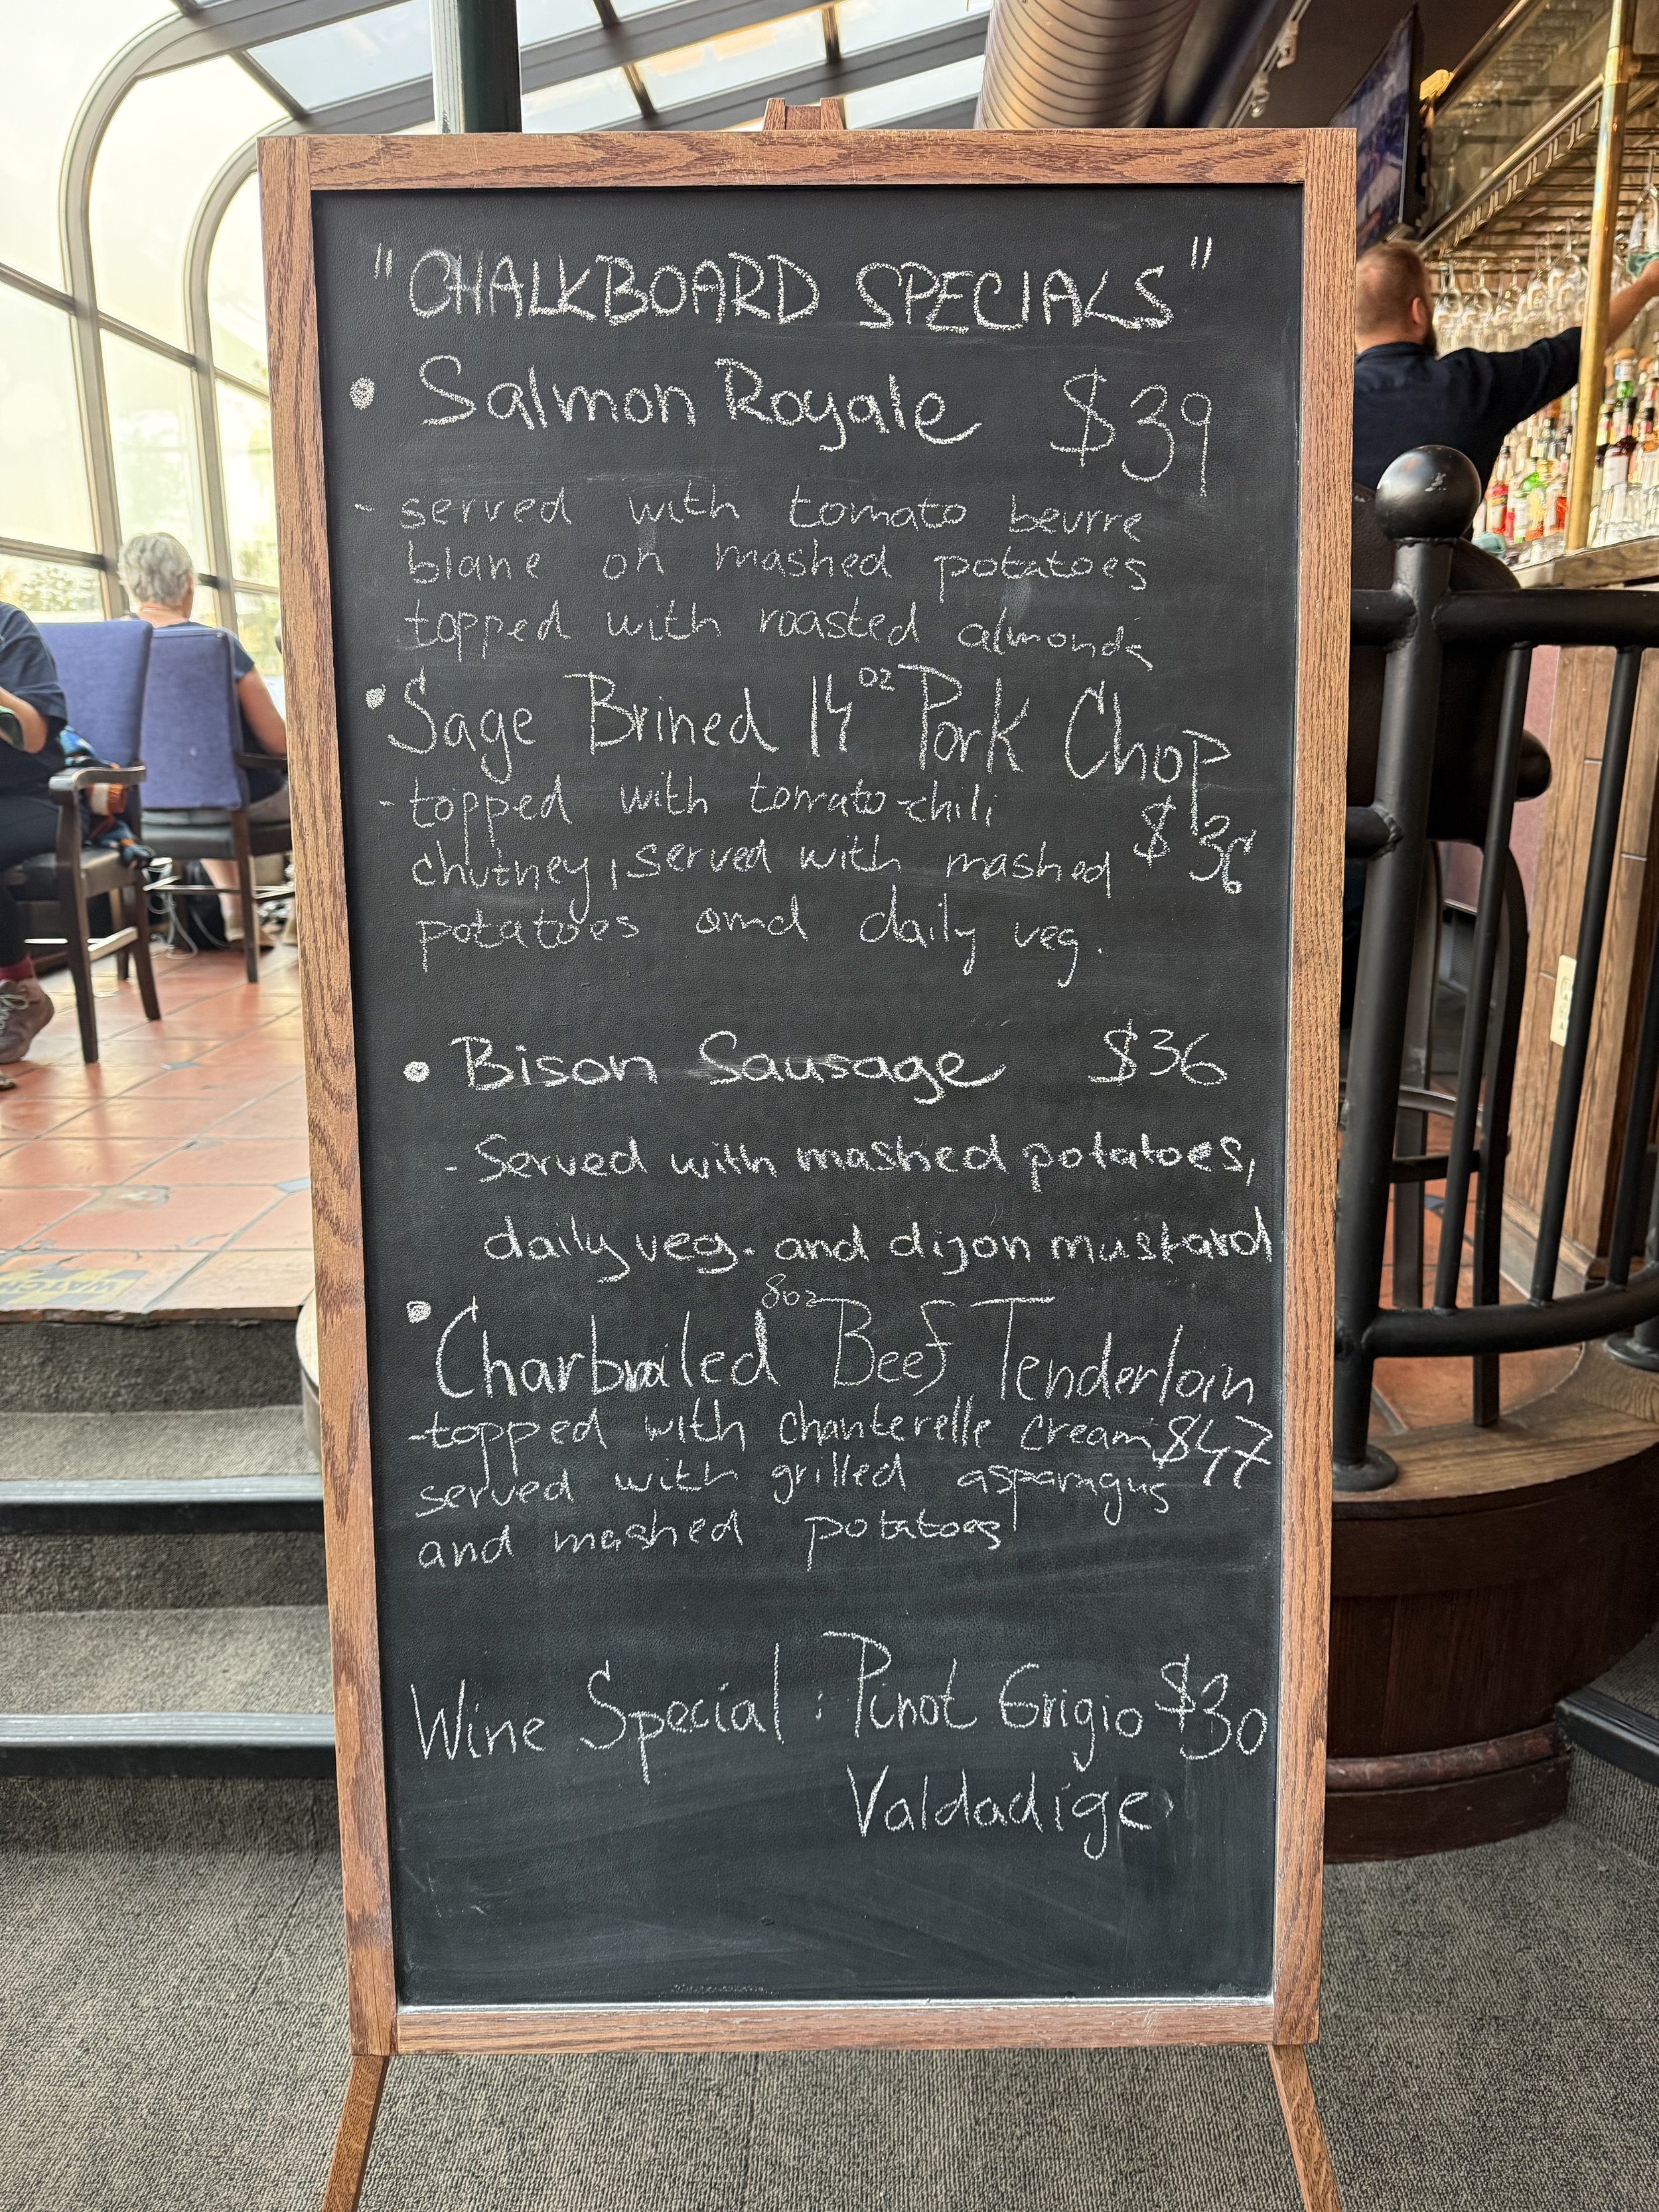 "CHALKBOARD SPECIALS"
• Salmon Royale $39
- served with tomato beurre
blanc on mashed potatoes
topped with roasted almonds
• Sage Brined 14oz Pork Chop
- topped with tomato-chili $36
chutney, served with mashed
potatoes and daily veg.
• Bison Sausage $36
- Served with mashed potatoes,
daily veg. and dijon mustard
• Charbroiled 8oz Beef Tenderloin
- topped with chanterelle cream $47
served with grilled asparagus
and mashed potatoes
Wine Special : Pinot Grigio $30
Valdadige